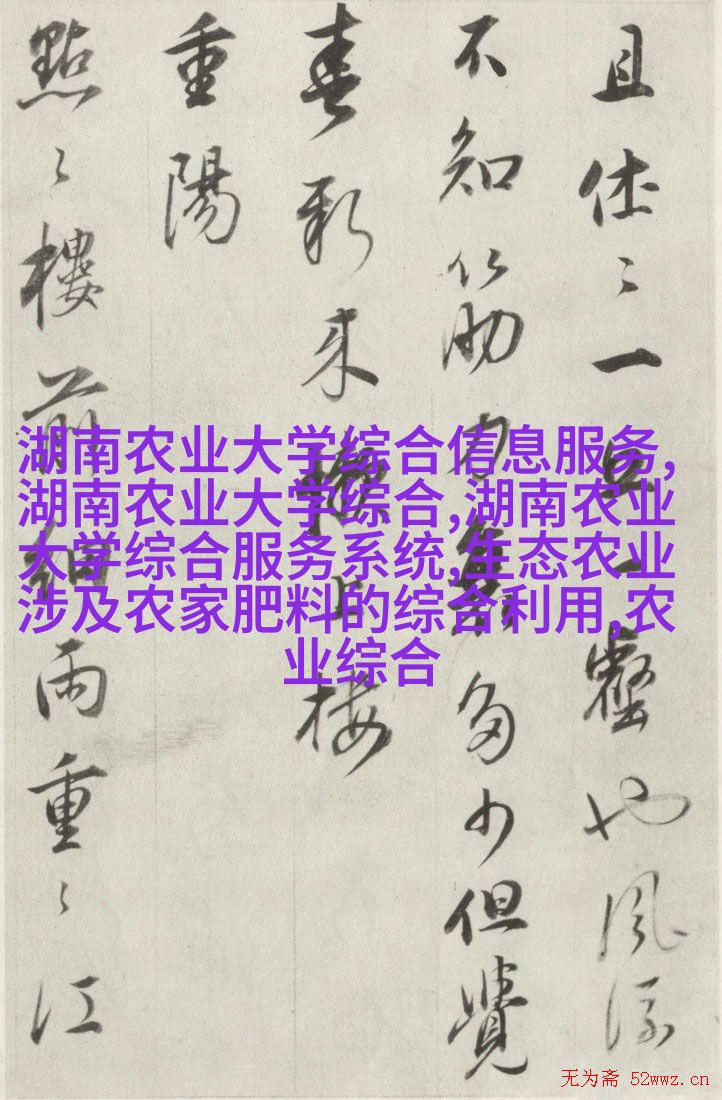 且休〻一丘一壑也風流
不知筋力衰多少但覺
春新来懶上樓
重陽
點〻樓前細雨重〻江
湖南农业大学综合信息服务,
湖南农业大学综合,湖南农业
大学综合服务系统,生态农业
涉及农家肥料的综合利用,农
业综合
无为斋 52wwz.cn